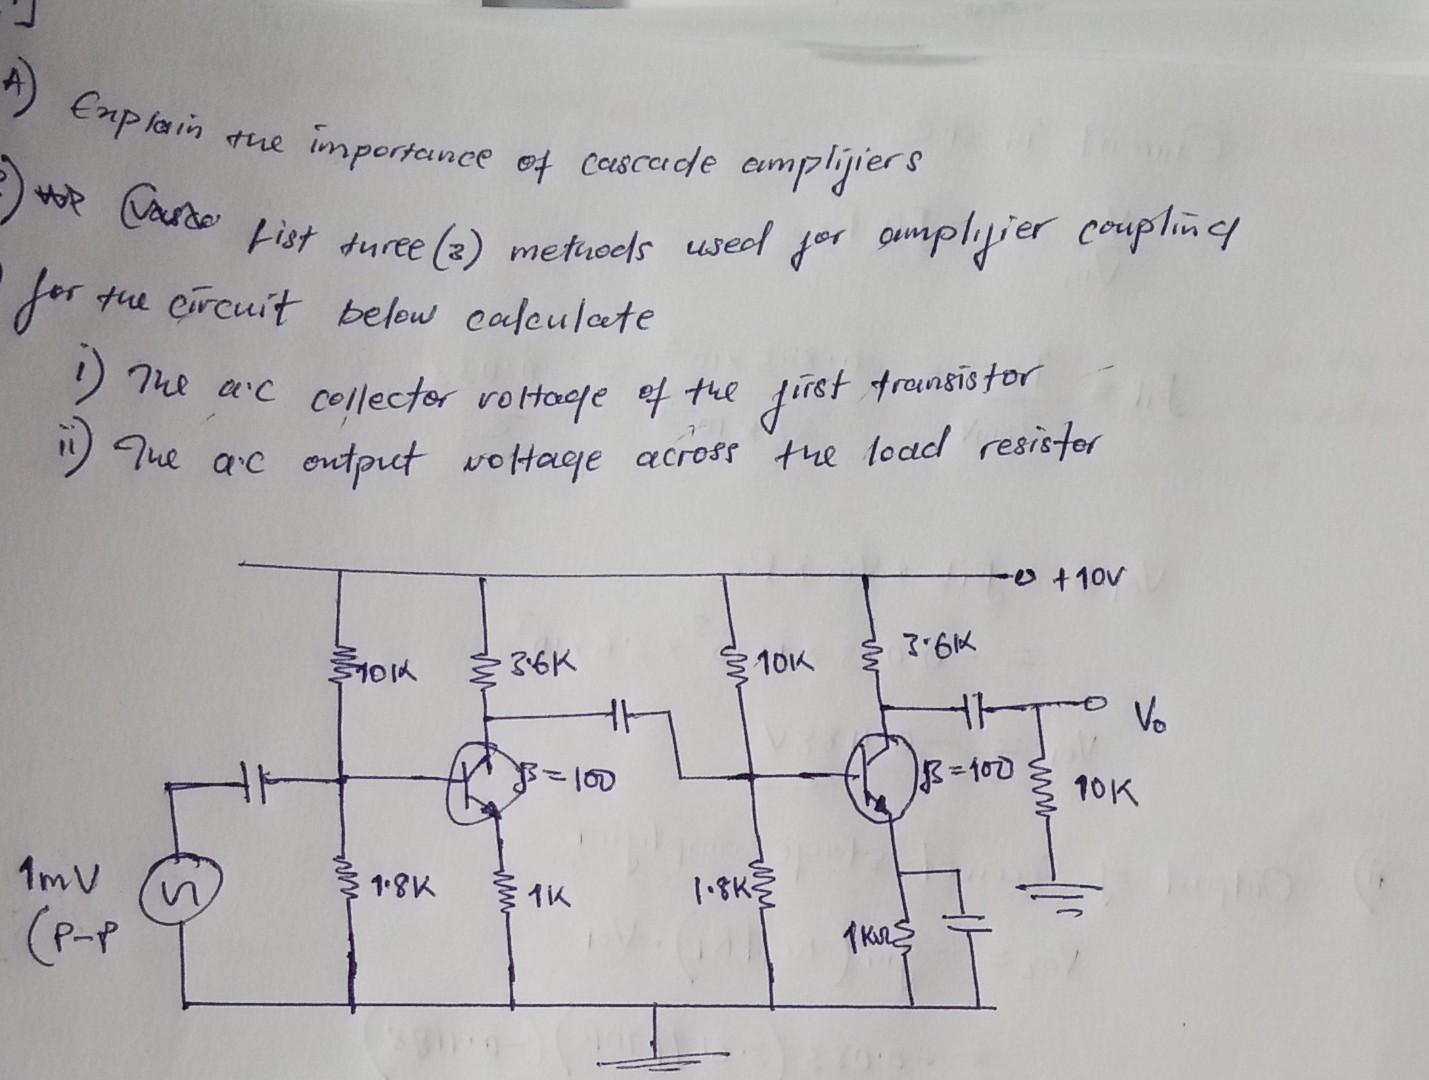 A) Explain the importance of cascade amplifiers
List three (3) methods used for amplifier coupling
for the circuit below calculate
i) The a.c collector voltage of the first transistor
ii) The a.c output voltage across the load resistor
+10V
10K 3.6K 10K 3.6K
Vo
β=100 β=100 10K
1mV
(P-P
1.8K 1K 1.8K 1KΩ